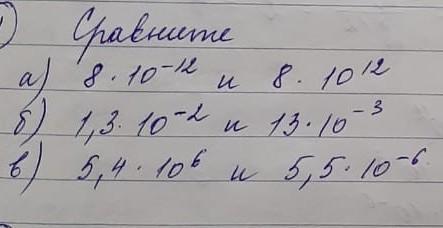 ) Сравните
а) 8 · 10⁻¹² и 8 · 10¹²
б) 1,3 · 10⁻² и 13 · 10⁻³
в) 5,4 · 10⁶ и 5,5 · 10⁻⁶